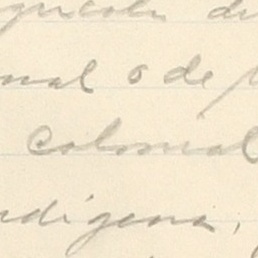 agricola de
nal o de
colonial
ndigena,